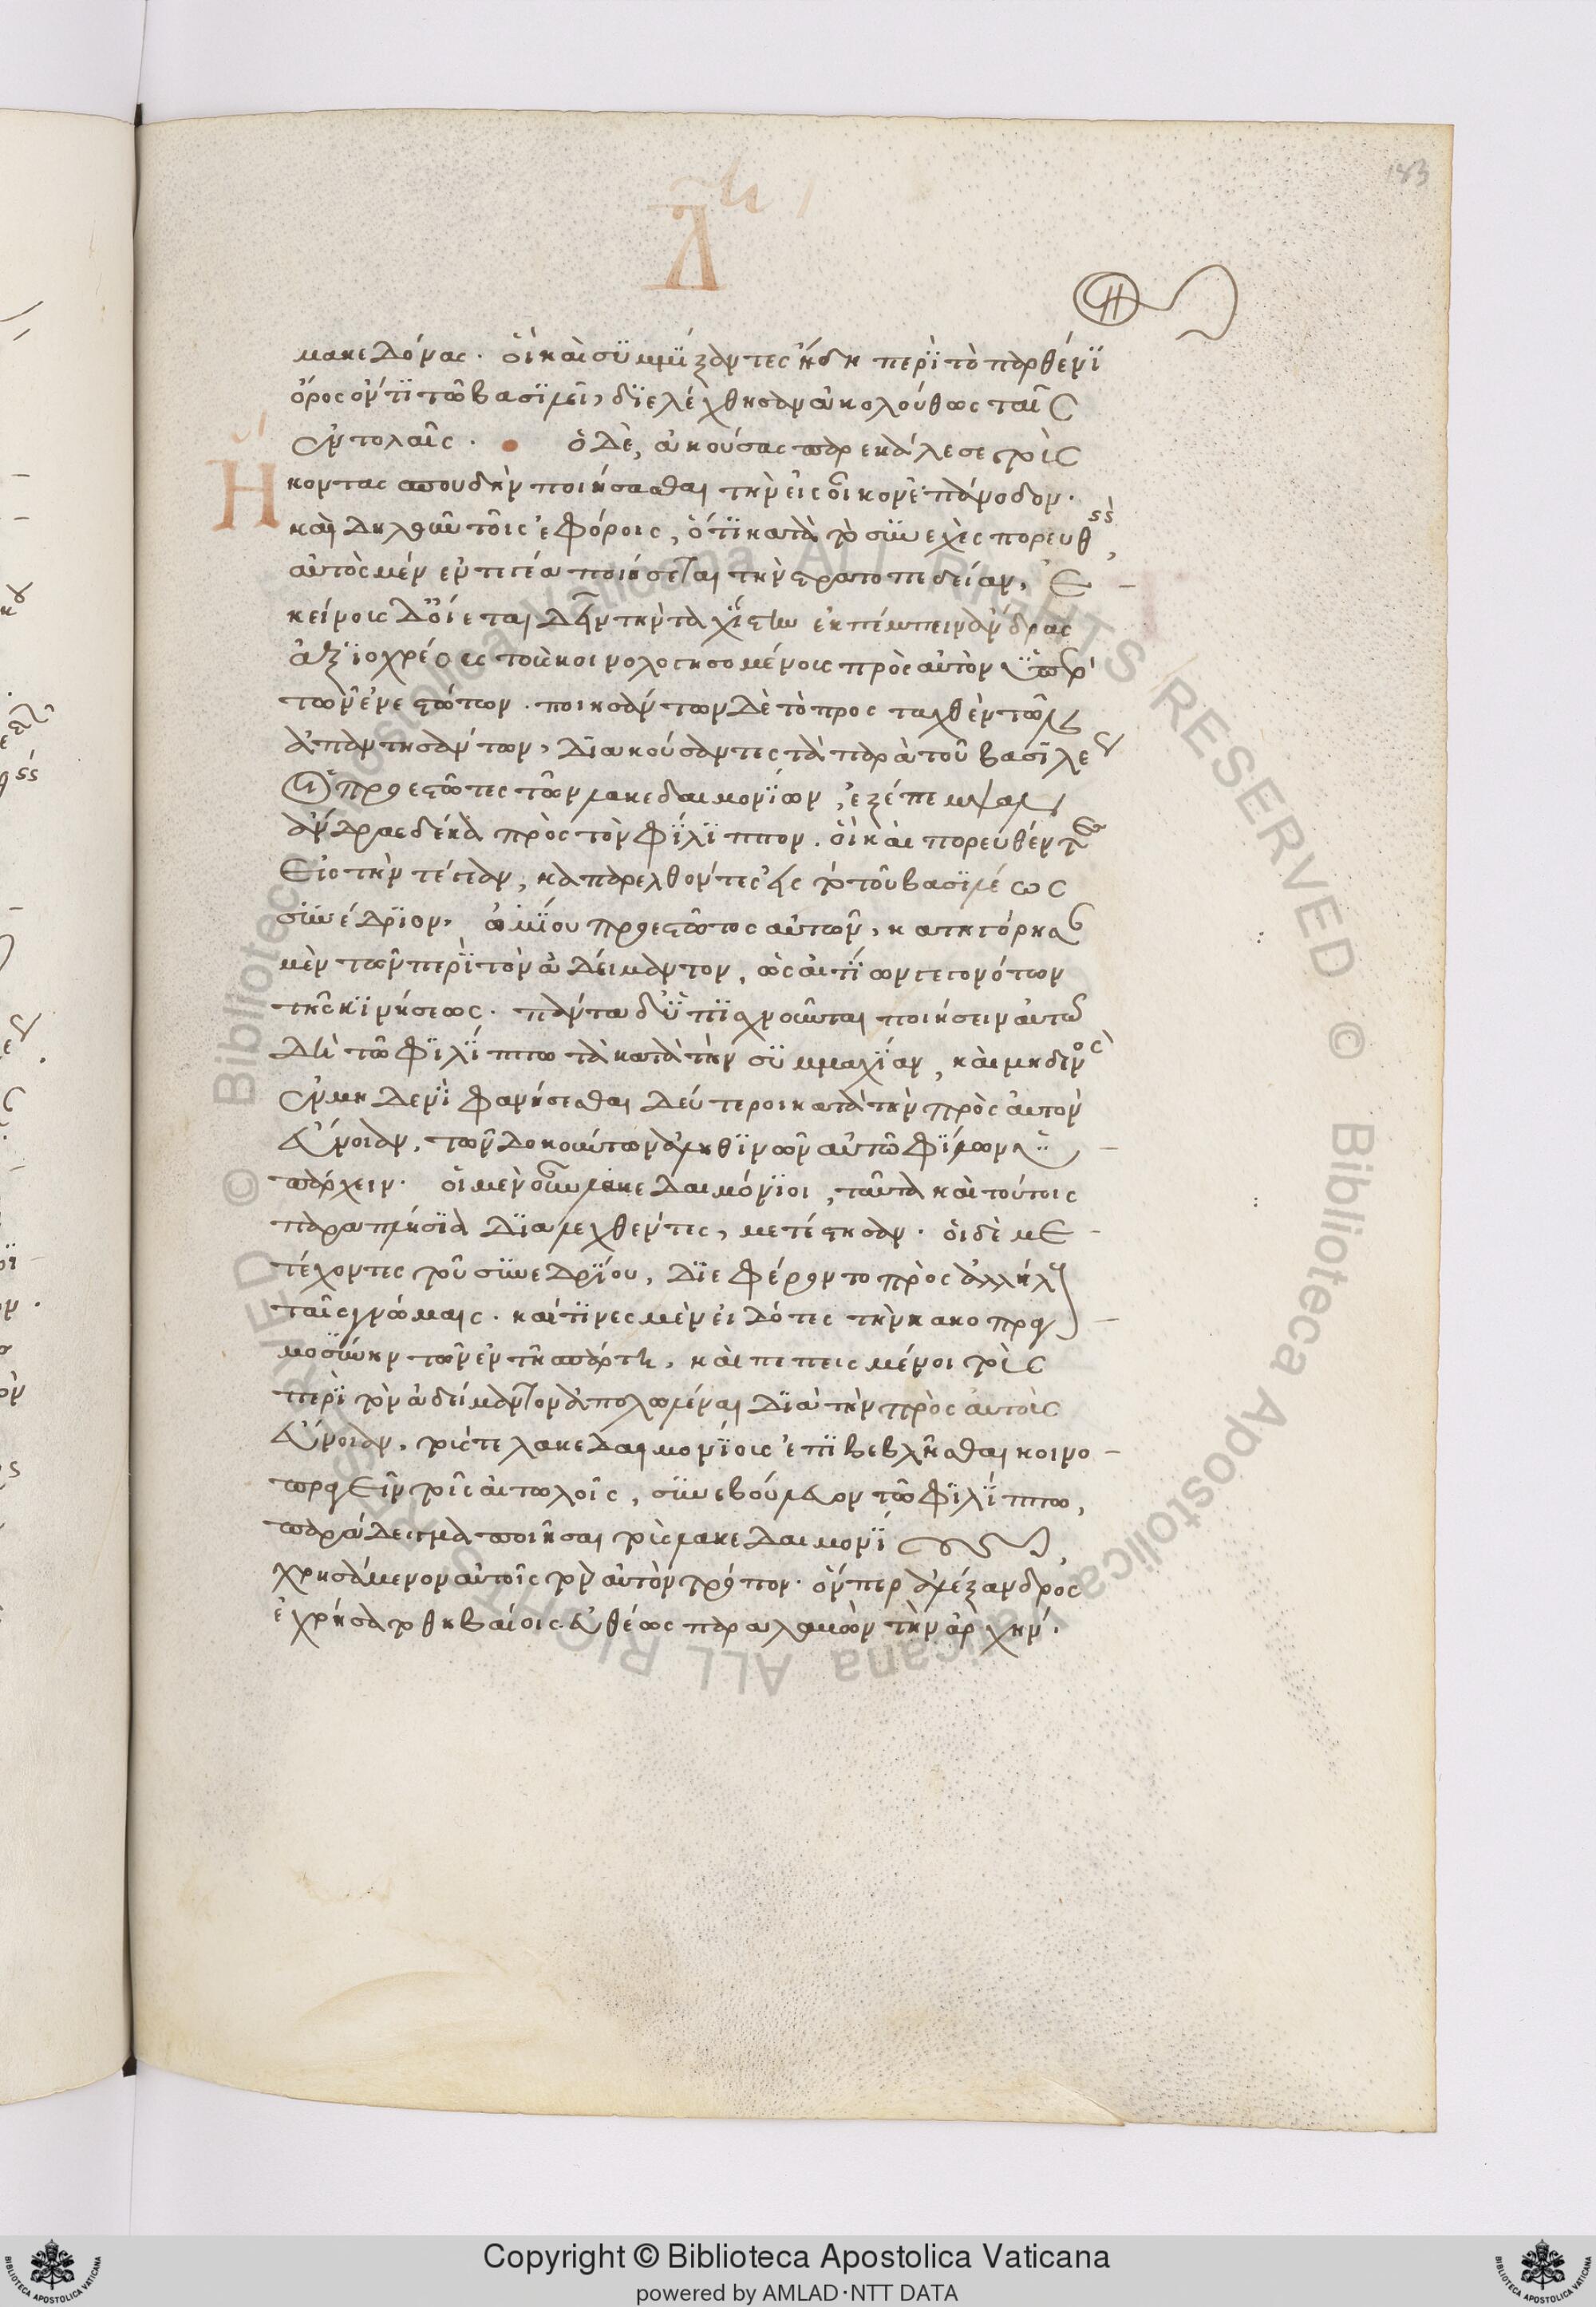 183
Δ
μακεδόνας. οἳ καὶ συμμίξαντες ἤδη περὶ τὸ παρθένι
ὄρος ὄντι τῶ βασιλεῖ, διελέχθησαν ἀκολούθως ταῖς
ἐντολαῖς. ὁ δὲ, ἀκούσας παρεκάλεσε τοὺς
Ἥκοντας σπουδὴν ποιήσασθαι τὴν εἰς οἶκον ἐπάνοδον.
καὶ δηλοῦν τοῖς ἐφόροις, ὅτι κατὰ τὸ συνεχὲς πορευθεὶς,
αὐτὸς μὲν ἐν τεγέα ποιήσεται τὴν στρατοπεδείαν, ἐ
κείνους δ' οἴεται δεῖν τὴν ταχίστην ἐκπέμπειν ἄνδρας
ἀξιόχρεους τοὺς κοινολογησομένους πρὸς αὐτὸν ὑπὲρ
τῶν ἐνεστώτων. ποιησάντων δὲ τὸ προσταχθὲν τῶν
ἀπαντησάντων, διακούσαντες τὰ παρὰ τοῦ βασιλέως
οἱ προεστῶτες τῶν λακεδαιμονίων, ἐξέπεμψαν
ἄνδρας δέκα πρὸς τὸν φίλιππον. οἳ καὶ πορευθέντες
εἰς τὴν τέγεαν, καὶ παρελθόντες εἰς τὸ τοῦ βασιλέως
συνέδριον, ὠμίου προεστῶτος αὐτῶν, κατηγόρησαν
μὲν τῶν περὶ τὸν ἀδείμαντον, ὡς αἰτίων γεγονότων
τῆς κινήσεως. πάντα δ' ὑπισχνοῦνται ποιήσειν αὐτοὶ
δὲ τῶ φιλίππω τὰ κατὰ τὴν συμμαχίαν, καὶ μηδενὸς
ἐν μηδενὶ φανήσεσθαι δεύτεροι κατὰ τὴν πρὸς αὐτὸν
εὔνοιαν, τῶν δοκούντων ἀληθινῶν αὐτῶ φίλων ὑ
πάρχειν. οἱ μὲν οὖν λακεδαιμόνιοι, ταῦτα καὶ τούτοις
παραπλήσια διαλεχθέντες, μετέστησαν. οἱ δὲ με
τέχοντες τοῦ συνεδρίου, διεφέροντο πρὸς ἀλλήλους
ταῖς γνώμαις. καί τινες μὲν εἰδότες τὴν κακοπραγ
μοσύνην τῶν ἐν τῆ σπάρτη, καὶ πεπεισμένοι τοὺς
περὶ τὸν ἀδείμαντον ἀπολωλέναι διὰ τὴν πρὸς αὐτοὺς
εὔνοιαν, τούς τε λακεδαιμονίους ἐπιβεβλῆσθαι κοινο
πραγεῖν τοῖς αἰτωλοῖς, συνεβούλευον τῶ φιλίππω,
παράδειγμα ποιῆσαι τοὺς λακεδαιμονίους,
χρησάμενον αὐτοῖς τὸν αὐτὸν τρόπον. ὅνπερ ἀλέξανδρος
ἐχρήσατο θηβαίοις εὐθέως παραλαβὼν τὴν ἀρχήν.
Copyright © Biblioteca Apostolica Vaticana
powered by AMLAD·NTT DATA